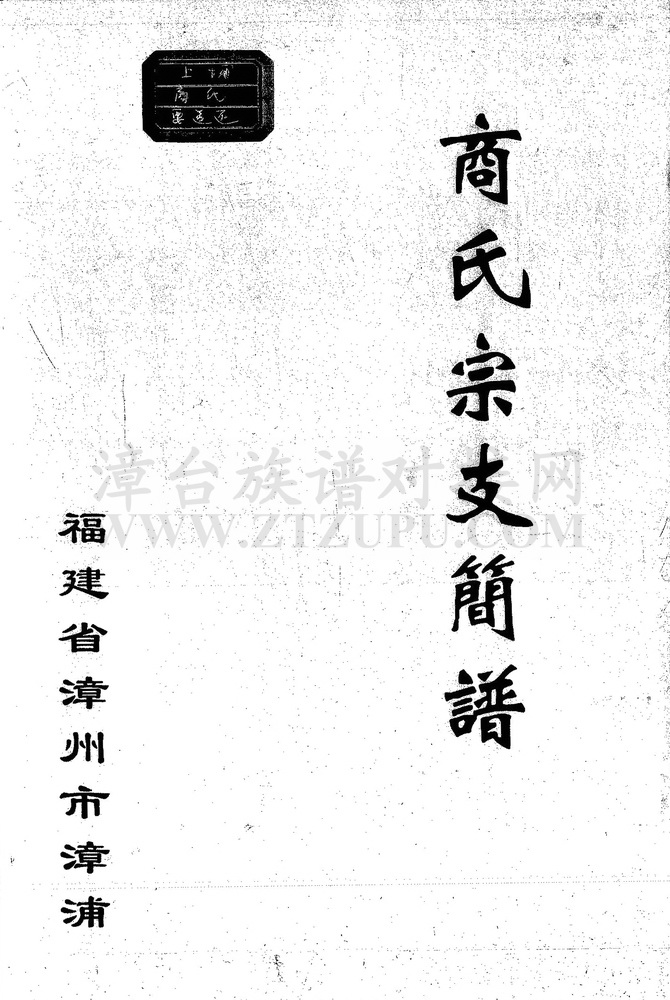 商氏宗支簡譜
福建省漳州市漳浦
上埔
商氏
要送还
漳台族谱对接网
WWW.ZTZUPU.COM